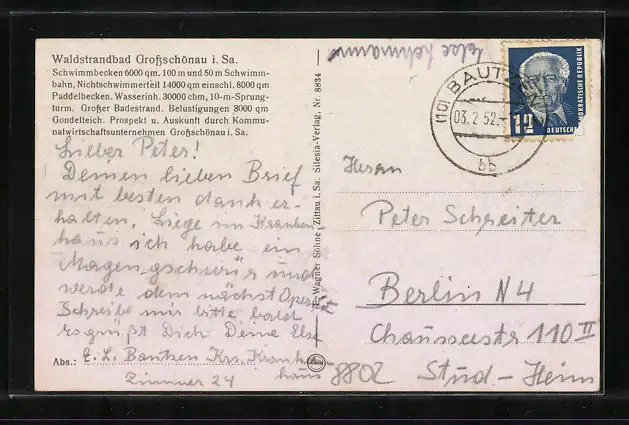 Waldstrandbad Großschönau i. Sa.
Schwimmbecken 6000 qm. 100 m und 50 m Schwimm-
bahn, Nichtschwimmerteil 14000 qm einschl. 8000 qm
Paddelbecken. Wasserinh. 30000 cbm, 10-m-Sprung-
turm. Großer Badestrand. Belustigungen 8000 qm
Gondelteich. Prospekt u. Auskunft durch Kommu-
nalwirtschaftsunternehmen Großschönau i. Sa.
Lieber Peter!
Deinen lieben Brief
mit besten dank er-
halten. Liege im Kranken
haus ich habe ein
Magengschwür und
werde dem nächst
Schreibe mir bitte bald
es grüßt Dich Deine Else
Abs.: E. L. Bautzen Krs. Kranken
haus
Zimmer 24
Wagner Söhne, Zittau i. Sa. Silesia-Verlag, Nr. 8834
Else Lehmann
(10) BAUTZEN
03.2.52.
bb
12
DEUTSCHE
DEMOKRATISCHE REPUBLIK
Herrn
Peter Schreiter
Berlin N 4
Chausseestr 110 II
Stud-Heim
8802